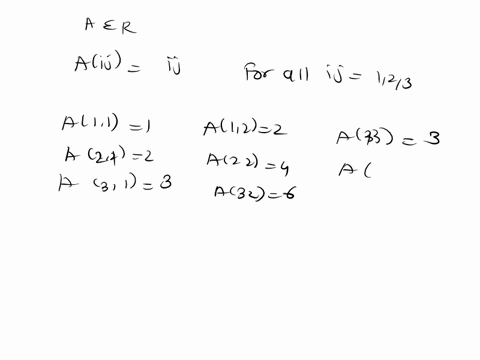 A ∈ R
A(ij) = ij For all ij = 1,2,3
A(1,1) = 1 A(1,2) = 2 A(33) = 3
A(2,1) = 2 A(22) = 4 A(
A(3,1) = 3 A(32) = 6